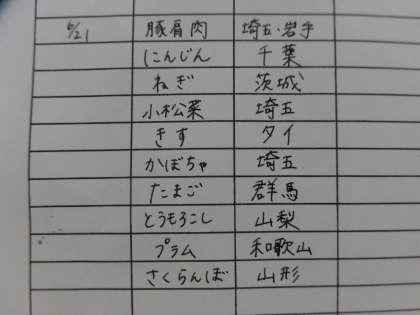 6/21 豚肩肉 埼玉・岩手
にんじん 千葉
ねぎ 茨城
小松菜 埼玉
きす タイ
かぼちゃ 埼玉
たまご 群馬
とうもろこし 山梨
プラム 和歌山
さくらんぼ 山形